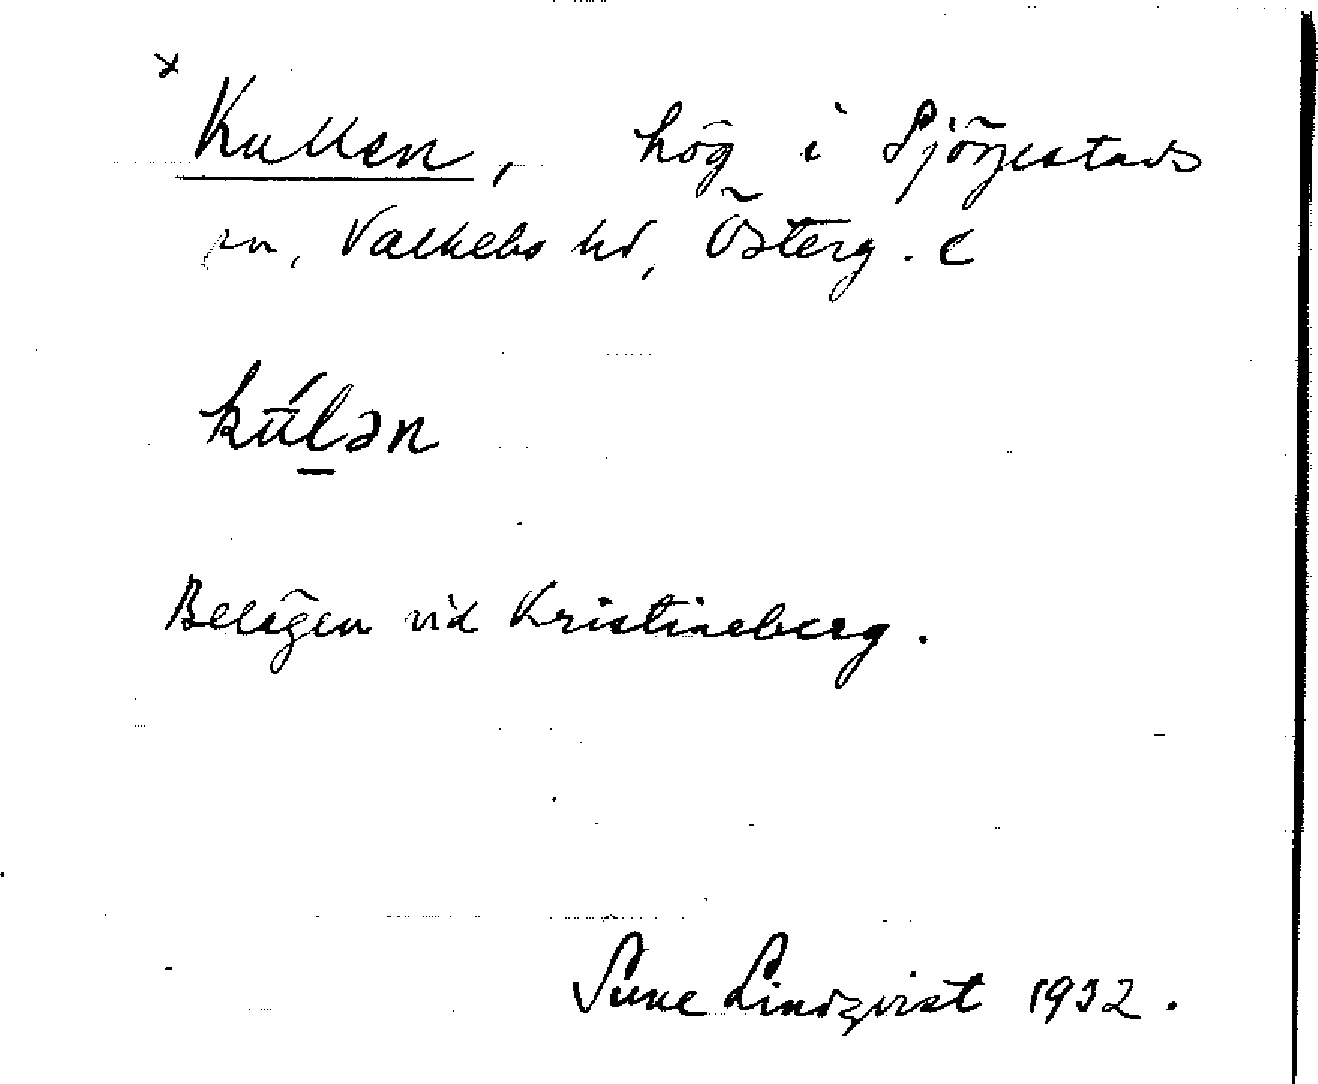 * Kullen, hög i Sjögestads
sn, Valkebo hd, Österg. l
kúlən
Belägen vid Kristineberg.
Sune Lindqvist 1932.